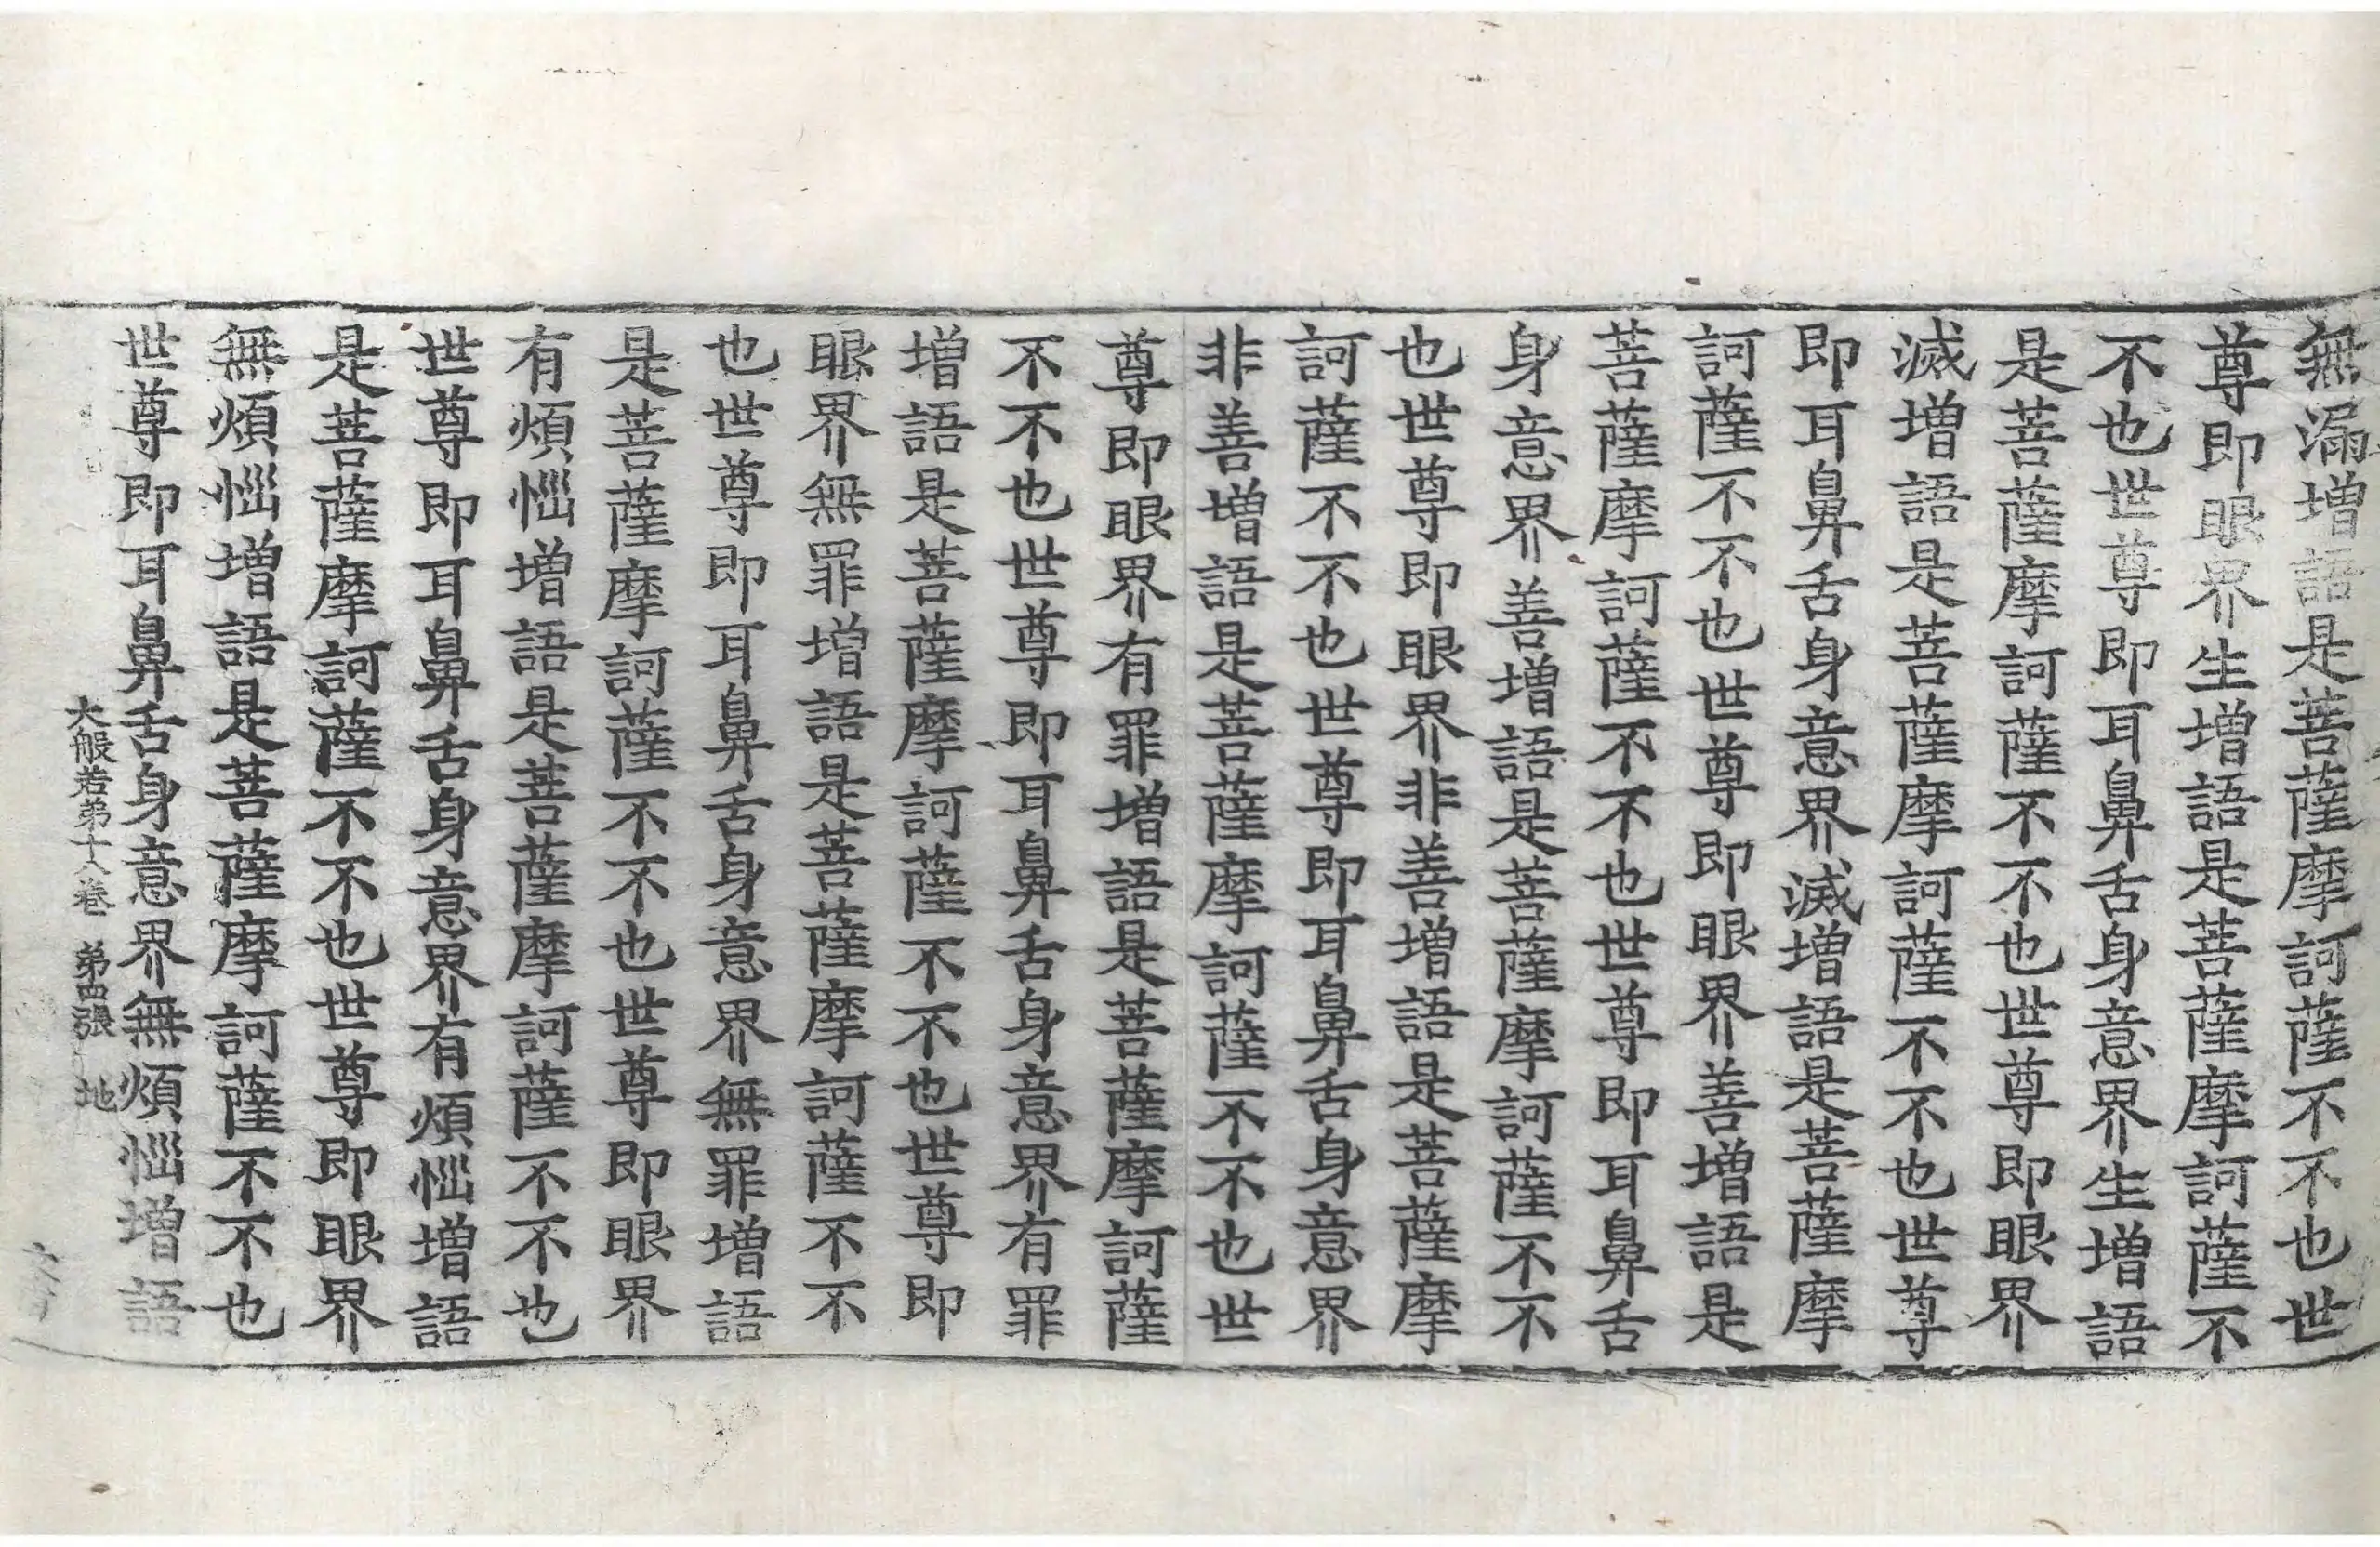 無漏增語是菩薩摩訶薩不不也世
尊即眼界生增語是菩薩摩訶薩不
不也世尊即耳鼻舌身意界生增語
是菩薩摩訶薩不不也世尊即眼界
滅增語是菩薩摩訶薩不不也世尊
即耳鼻舌身意界滅增語是菩薩摩
訶薩不不也世尊即眼界善增語是
菩薩摩訶薩不不也世尊即耳鼻舌
身意界善增語是菩薩摩訶薩不不
也世尊即眼界非善增語是菩薩摩
訶薩不不也世尊即耳鼻舌身意界
非善增語是菩薩摩訶薩不不也世
尊即眼界有罪增語是菩薩摩訶薩
不不也世尊即耳鼻舌身意界有罪
增語是菩薩摩訶薩不不也世尊即
眼界無罪增語是菩薩摩訶薩不不
也世尊即耳鼻舌身意界無罪增語
是菩薩摩訶薩不不也世尊即眼界
有煩惱增語是菩薩摩訶薩不不也
世尊即耳鼻舌身意界有煩惱增語
是菩薩摩訶薩不不也世尊即眼界
無煩惱增語是菩薩摩訶薩不不也
世尊即耳鼻舌身意界無煩惱增語
大般若第十八卷 第四張 地